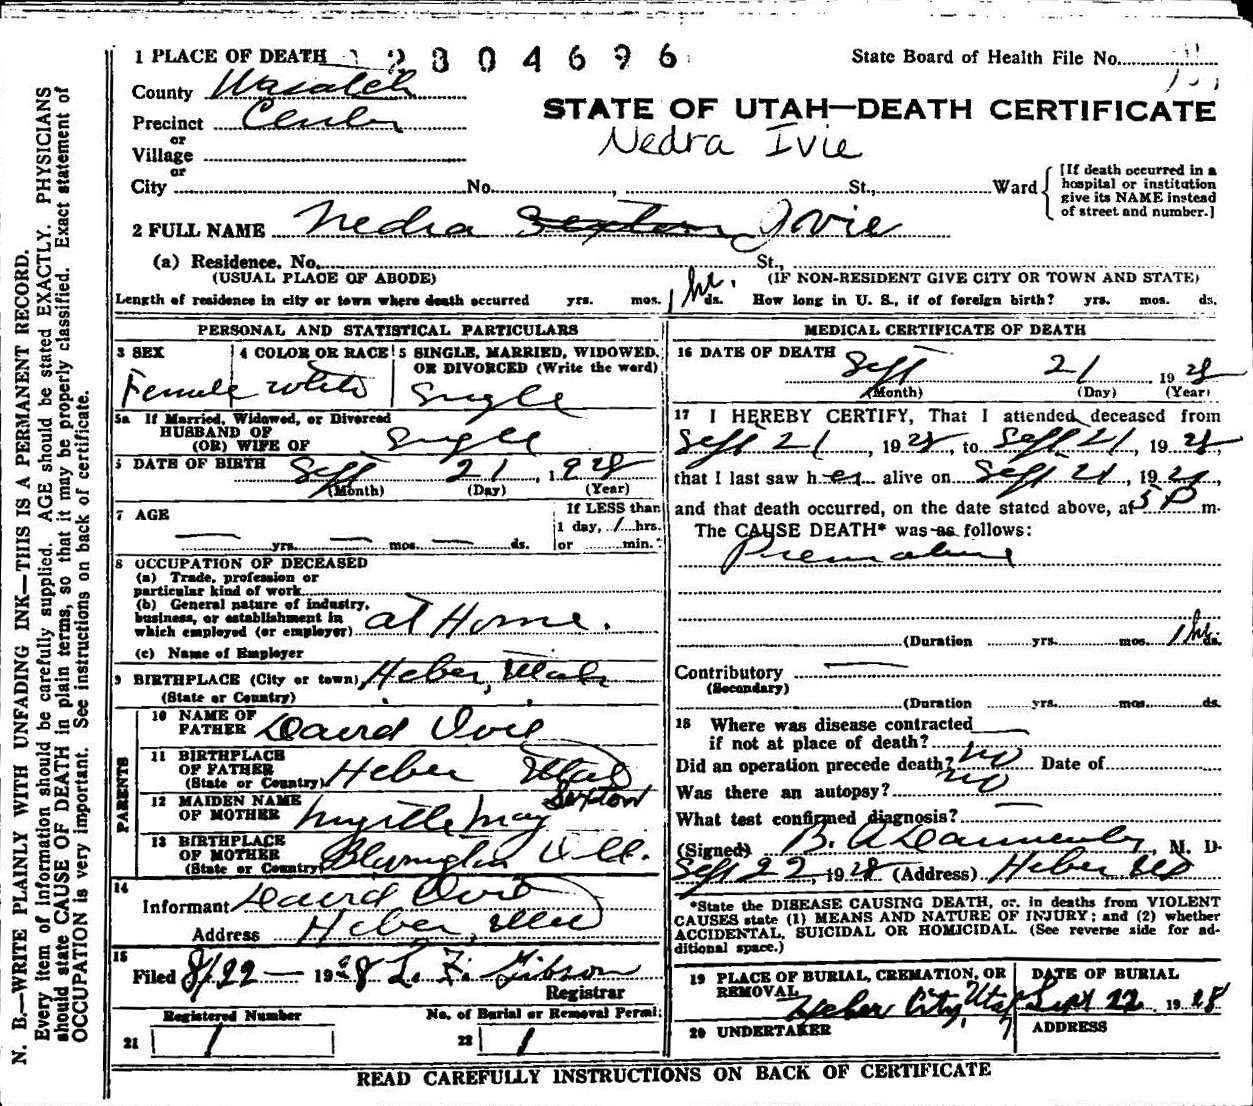 N. B.—WRITE PLAINLY WITH UNFADING INK—THIS IS A PERMANENT RECORD.
Every item of information should be carefully supplied. AGE should be stated EXACTLY. PHYSICIANS
should state CAUSE OF DEATH in plain terms, so that it may be properly classified. Exact statement of
OCCUPATION is very important. See instructions on back of certificate.
1 PLACE OF DEATH 2804696 State Board of Health File No.
County Wasatch
STATE OF UTAH—DEATH CERTIFICATE
Precinct Center
Nedra Ivie
or
Village
or
City No. , St., Ward
[If death occurred in a
hospital or institution
give its NAME instead
of street and number.]
2 FULL NAME Nedra Sexton Ivie
(a) Residence. No. St.,
(USUAL PLACE OF ABODE) (IF NON-RESIDENT GIVE CITY OR TOWN AND STATE)
Length of residence in city or town where death occurred yrs. mos. 1 hr. ds. How long in U. S., if of foreign birth? yrs. mos. ds.
PERSONAL AND STATISTICAL PARTICULARS
3 SEX
Female
4 COLOR OR RACE
White
5 SINGLE, MARRIED, WIDOWED,
OR DIVORCED (Write the word)
Single
5a If Married, Widowed, or Divorced
HUSBAND OF
(OR) WIFE OF Single
DATE OF BIRTH Sept 21, 1928
(Month) (Day) (Year)
7 AGE
yrs. mos. ds.
If LESS than
1 day, 1 hrs.
or min.
8 OCCUPATION OF DECEASED
(a) Trade, profession or
particular kind of work
(b) General nature of industry,
business, or establishment in
which employed (or employer) at Home.
(c) Name of Employer
9 BIRTHPLACE (City or town) Heber, Utah
(State or Country)
PARENTS
10 NAME OF
FATHER David Ivie
11 BIRTHPLACE
OF FATHER
(State or Country) Heber Utah
12 MAIDEN NAME
OF MOTHER Myrtle May Sexton
13 BIRTHPLACE
OF MOTHER
(State or Country) Ill.
14
Informant David Ivie
Address Heber, Utah
15
Filed 8/22 — 1928 L. F. Gibson
Registrar
Registered Number
21 1
No. of Burial or Removal Permi:
22 1
MEDICAL CERTIFICATE OF DEATH
16 DATE OF DEATH
Sept 21 1928
(Month) (Day) (Year)
17 I HEREBY CERTIFY, That I attended deceased from
Sept 21, 1928, to Sept 21, 1928,
that I last saw her alive on Sept 21, 1928,
and that death occurred, on the date stated above, at 5 P m.
The CAUSE DEATH* was as follows:
Premature
(Duration yrs. mos. 1 hr. ds.
Contributory
(Secondary)
(Duration yrs. mos. ds.
18 Where was disease contracted
if not at place of death?
Did an operation precede death? no Date of
Was there an autopsy? no
What test confirmed diagnosis?
(Signed) B. A. , M. D.
Sept 22, 1928 (Address) Heber Ut
*State the DISEASE CAUSING DEATH, or, in deaths from VIOLENT
CAUSES state (1) MEANS AND NATURE OF INJURY; and (2) whether
ACCIDENTAL, SUICIDAL OR HOMICIDAL. (See reverse side for ad-
ditional space.)
19 PLACE OF BURIAL, CREMATION, OR
REMOVAL
Heber City, Utah
DATE OF BURIAL
Sept 22 1928
20 UNDERTAKER
ADDRESS
READ CAREFULLY INSTRUCTIONS ON BACK OF CERTIFICATE